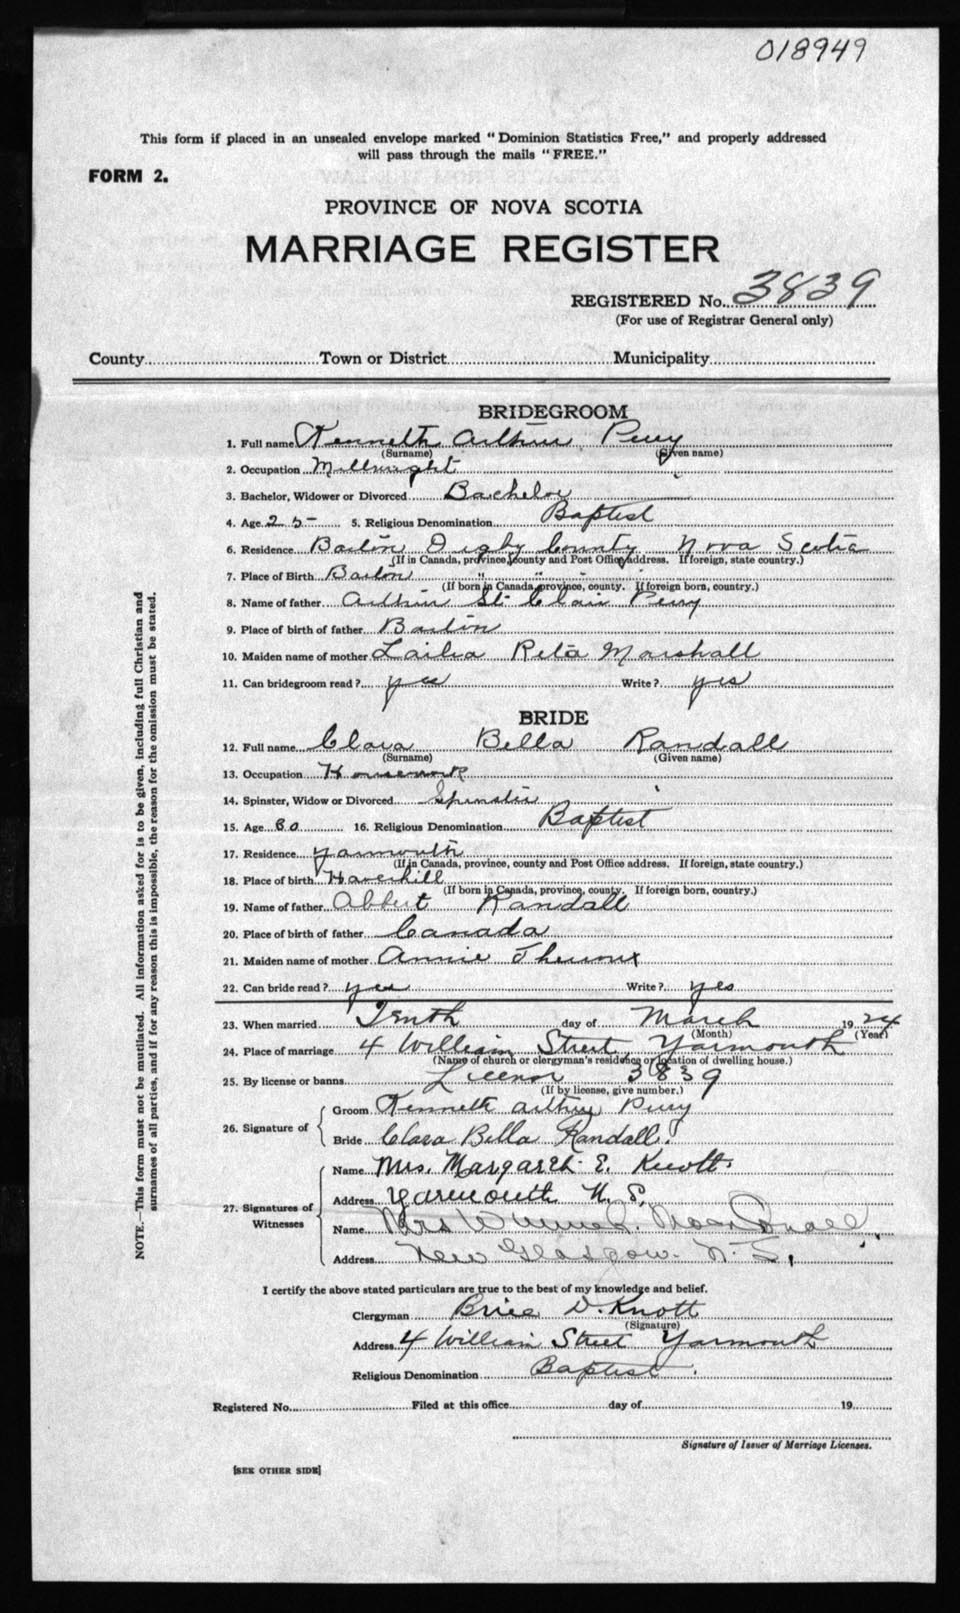 018949
This form if placed in an unsealed envelope marked "Dominion Statistics Free," and properly addressed
will pass through the mails "FREE."
FORM 2.
PROVINCE OF NOVA SCOTIA
MARRIAGE REGISTER
REGISTERED No. 3839
(For use of Registrar General only)
County Town or District Municipality
BRIDEGROOM
1. Full name Kenneth Arthur Perry
(Surname) (Given name)
2. Occupation Millwright
3. Bachelor, Widower or Divorced Bachelor
4. Age 25 5. Religious Denomination Baptist
6. Residence Barton Digby County Nova Scotia
(If in Canada, province, county and Post Office address. If foreign, state country.)
7. Place of Birth Barton " "
(If born in Canada, province, county. If foreign born, country.)
8. Name of father Arthur St. Clair Perry
9. Place of birth of father Barton
10. Maiden name of mother Reta Marshall
11. Can bridegroom read? yes Write? yes
BRIDE
12. Full name Clara Bella Randall
(Surname) (Given name)
13. Occupation Housework
14. Spinster, Widow or Divorced Spinster
15. Age 16. Religious Denomination Baptist
17. Residence Yarmouth
(If in Canada, province, county and Post Office address. If foreign, state country.)
18. Place of birth Haverhill
(If born in Canada, province, county. If foreign born, country.)
19. Name of father Albert Randall
20. Place of birth of father Canada
21. Maiden name of mother Annie
22. Can bride read? yes Write? yes
23. When married Tenth day of March 1924
(Month) (Year)
24. Place of marriage 4 William Street, Yarmouth
(Name of church or clergyman's residence or location of dwelling house.)
25. By license or banns License 3839
(If by license, give number.)
26. Signature of
Groom Kenneth Arthur Perry
Bride Clara Bella Randall.
27. Signatures of Witnesses
Name Mrs. Margaret E. Knott
Address Yarmouth N. S.
Name Mrs MacDonald,
Address New Glasgow. N. S.
I certify the above stated particulars are true to the best of my knowledge and belief.
Clergyman Brice D. Knott
(Signature)
Address 4 William Street Yarmouth
Religious Denomination Baptist.
Registered No. Filed at this office day of 19
Signature of Issuer of Marriage Licenses.
[SEE OTHER SIDE]
NOTE.—This form must not be mutilated. All information asked for is to be given, including full Christian and
surnames of all parties, and if for any reason this is impossible, the reason for the omission must be stated.